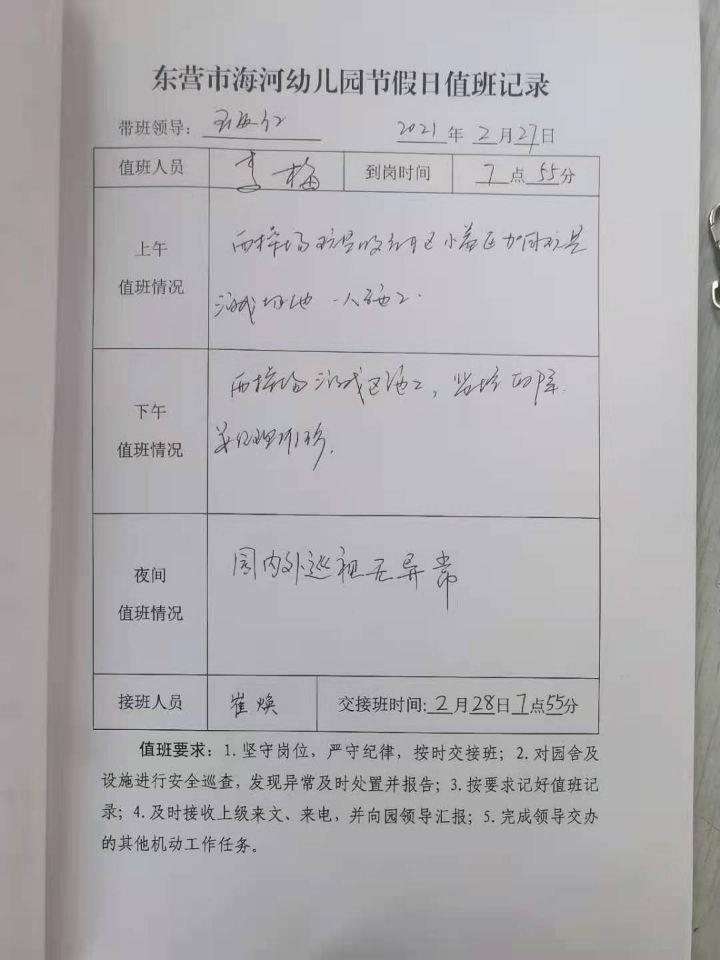 东营市海河幼儿园节假日值班记录
带班领导: 2021年2月27日
值班人员 李梅 到岗时间 7点55分
上午
值班情况
西操场
游戏场地
下午
值班情况
西操场游戏区施工,监控
夜间
值班情况
园内外巡视无异常
接班人员 崔焕 交接班时间:2月28日7点55分
值班要求:1.坚守岗位,严守纪律,按时交接班;2.对园舍及
设施进行安全巡查,发现异常及时处置并报告;3.按要求记好值班记
录;4.及时接收上级来文、来电,并向园领导汇报;5.完成领导交办
的其他机动工作任务。